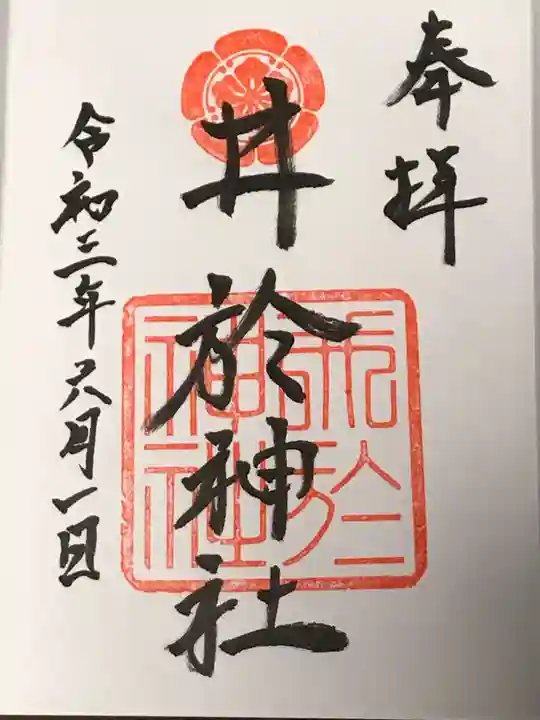 奉拝
井於神社
令和三年六月一日
神社